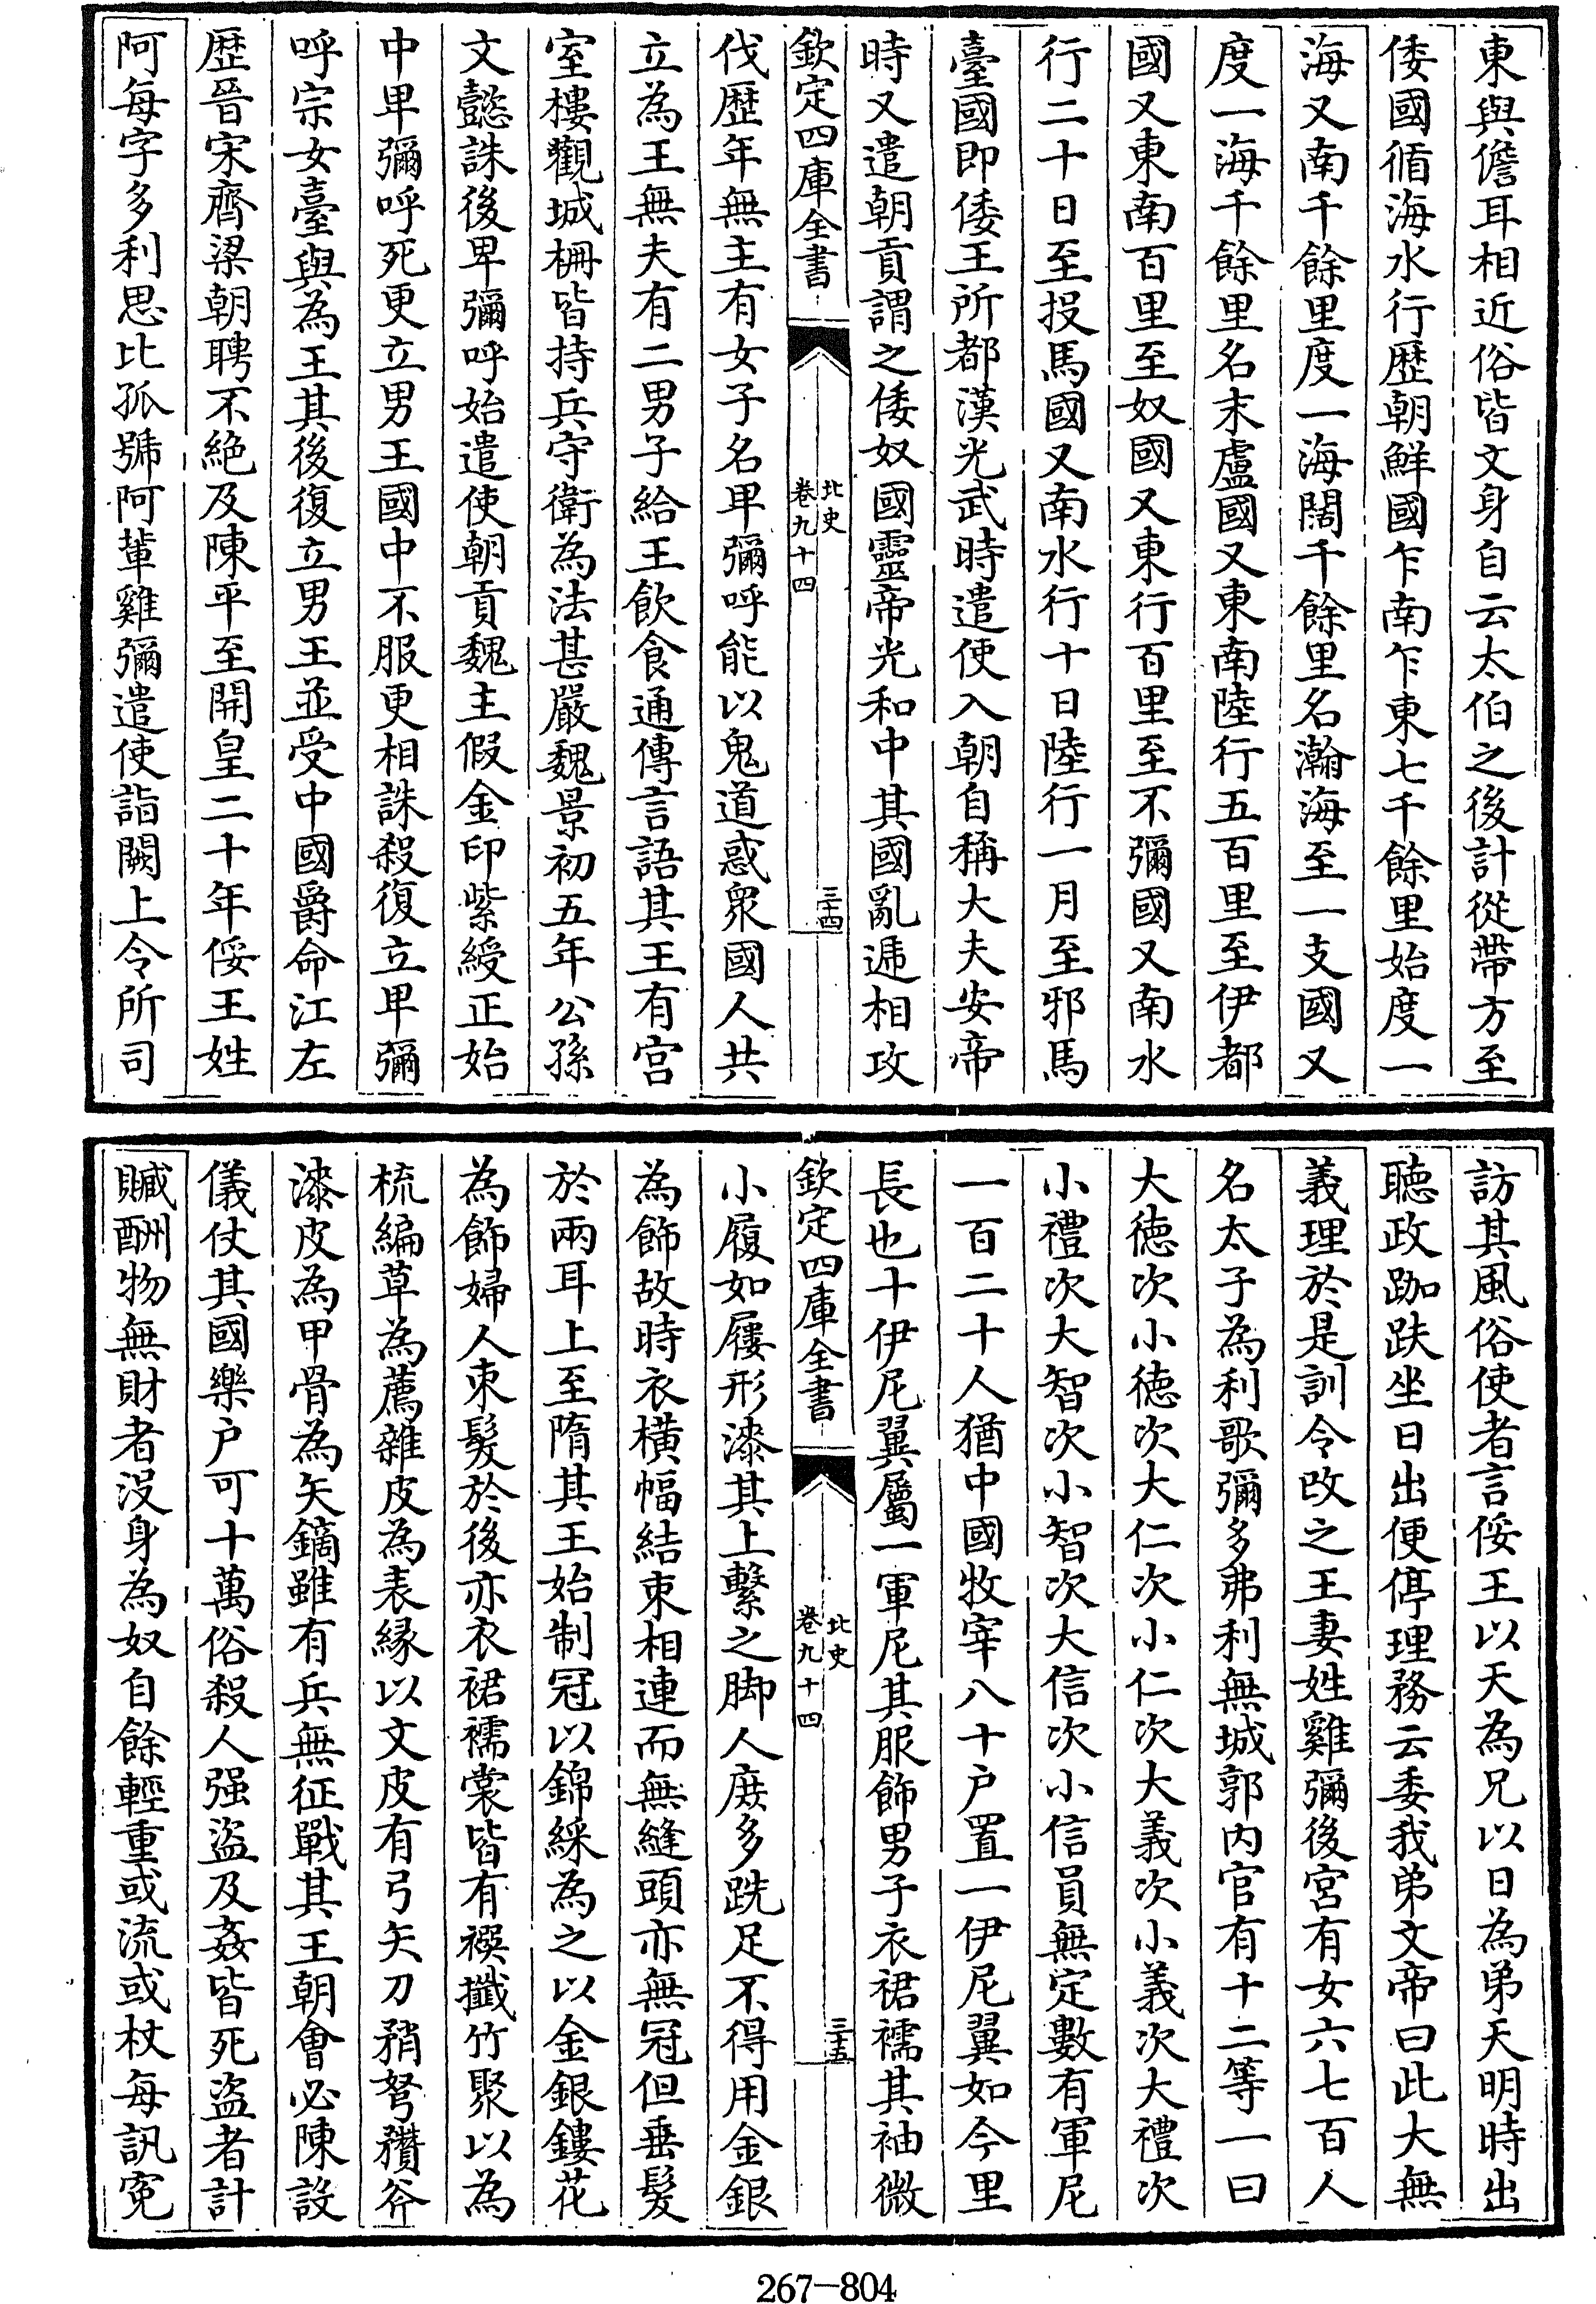 東與儋耳相近俗皆文身自云太伯之後計從帶方至
倭國循海水行歴朝鮮國乍南乍東七千餘里始度一
海又南千餘里度一海闊千餘里名瀚海至一支國又
度一海千餘里名末盧國又東南陸行五百里至伊都
國又東南百里至奴國又東行百里至不彌國又南水
行二十日至投馬國又南水行十日陸行一月至邪馬
臺國即倭王所都漢光武時遣使入朝自稱大夫安帝
時又遣朝貢謂之倭奴國靈帝光和中其國亂遞相攻
欽定四庫全書
北史
卷九十四
三十四
伐歴年無主有女子名卑彌呼能以鬼道惑衆國人共
立為王無夫有二男子給王飲食通傳言語其王有宫
室樓觀城柵皆持兵守衛為法甚嚴魏景初五年公孫
文懿誅後卑彌呼始遣使朝貢魏主假金印紫綬正始
中卑彌呼死更立男王國中不服更相誅殺復立卑彌
呼宗女臺與為王其後復立男王並受中國爵命江左
歴晉宋齊梁朝聘不絶及陳平至開皇二十年倭王姓
阿每字多利思比孤號阿輩雞彌遣使詣闕上令所司
訪其風俗使者言倭王以天為兄以日為弟天明時出
聽政跏趺坐日出便停理務云委我弟文帝曰此大無
義理於是訓令改之王妻姓雞彌後宮有女六七百人
名太子為利歌彌多弗利無城郭内官有十二等一曰
大徳次小徳次大仁次小仁次大義次小義次大禮次
小禮次大智次小智次大信次小信員無定數有軍尼
一百二十人猶中國牧宰八十户置一伊尼翼如今里
長也十伊尼翼屬一軍尼其服飾男子衣裙襦其袖微
欽定四庫全書
北史
卷九十四
三十五
小履如屨形漆其上繫之脚人庶多跣足不得用金銀
為飾故時衣横幅結束相連而無縫頭亦無冠但垂髮
於兩耳上至隋其王始制冠以錦綵為之以金銀鏤花
為飾婦人束髮於後亦衣裙襦裳皆有襈攕竹聚以為
梳編草為薦雜皮為表緣以文皮有弓矢刀矟弩䂎斧
漆皮為甲骨為矢鏑雖有兵無征戰其王朝會必陳設
儀仗其國樂户可十萬俗殺人强盜及姦皆死盜者計
贓酬物無財者没身為奴自餘輕重或流或杖每訊寃
267-804